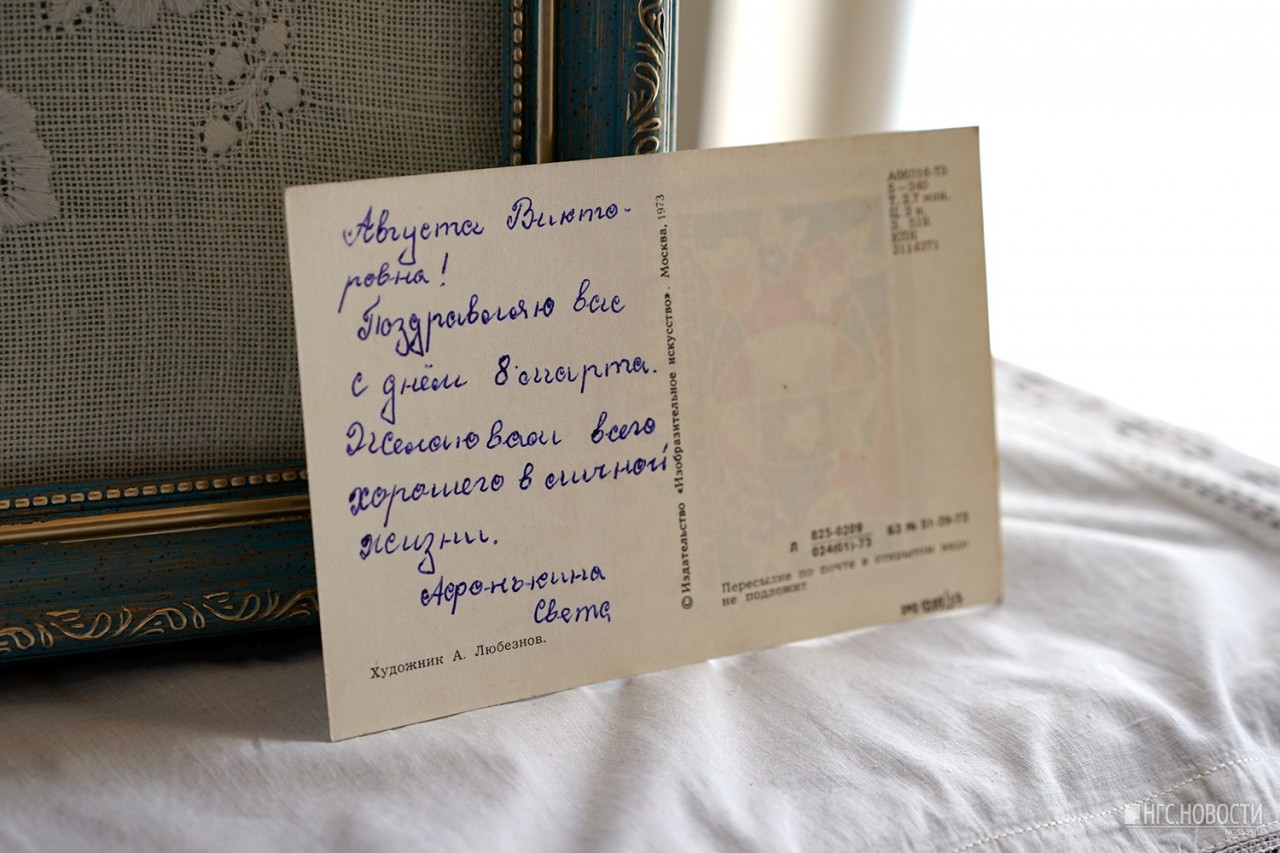 Августа Викто-
ровна!
Поздравляю вас
с днём 8 марта.
Желаю вам всего
хорошего в личной
жизни.
Афонькина
Света
Художник А. Любезнов.
© Издательство «Изобразительное искусство». Москва, 1973
5—340
Т. 2,7 млн.
Ц. 3 к.
3114371
Л 825-0209
024(01)-73
БЗ №
Пересылке по почте в открытом виде
не подлежит
НГС.НОВОСТИ